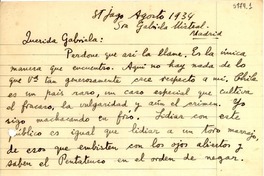 Stgo Agosto 1934
Sra Gabriela Mistral.
Madrid
Querida Gabriela:
Perdone que así la llame. Es la única
manera que encuentro. Aquí no hay nada de lo
que Ud tan generosamente cree respecto a mí. Chile
es un país raro, un caso especial que cultiva
el fracaso, la vulgaridad y aún el crimen. Yo
sigo machacando en frío. Lidiar con este
público es igual que lidiar a un toro marrajo,
de esos que embisten con los ojos abiertos y
saben el Pentateuco en el orden de negar.